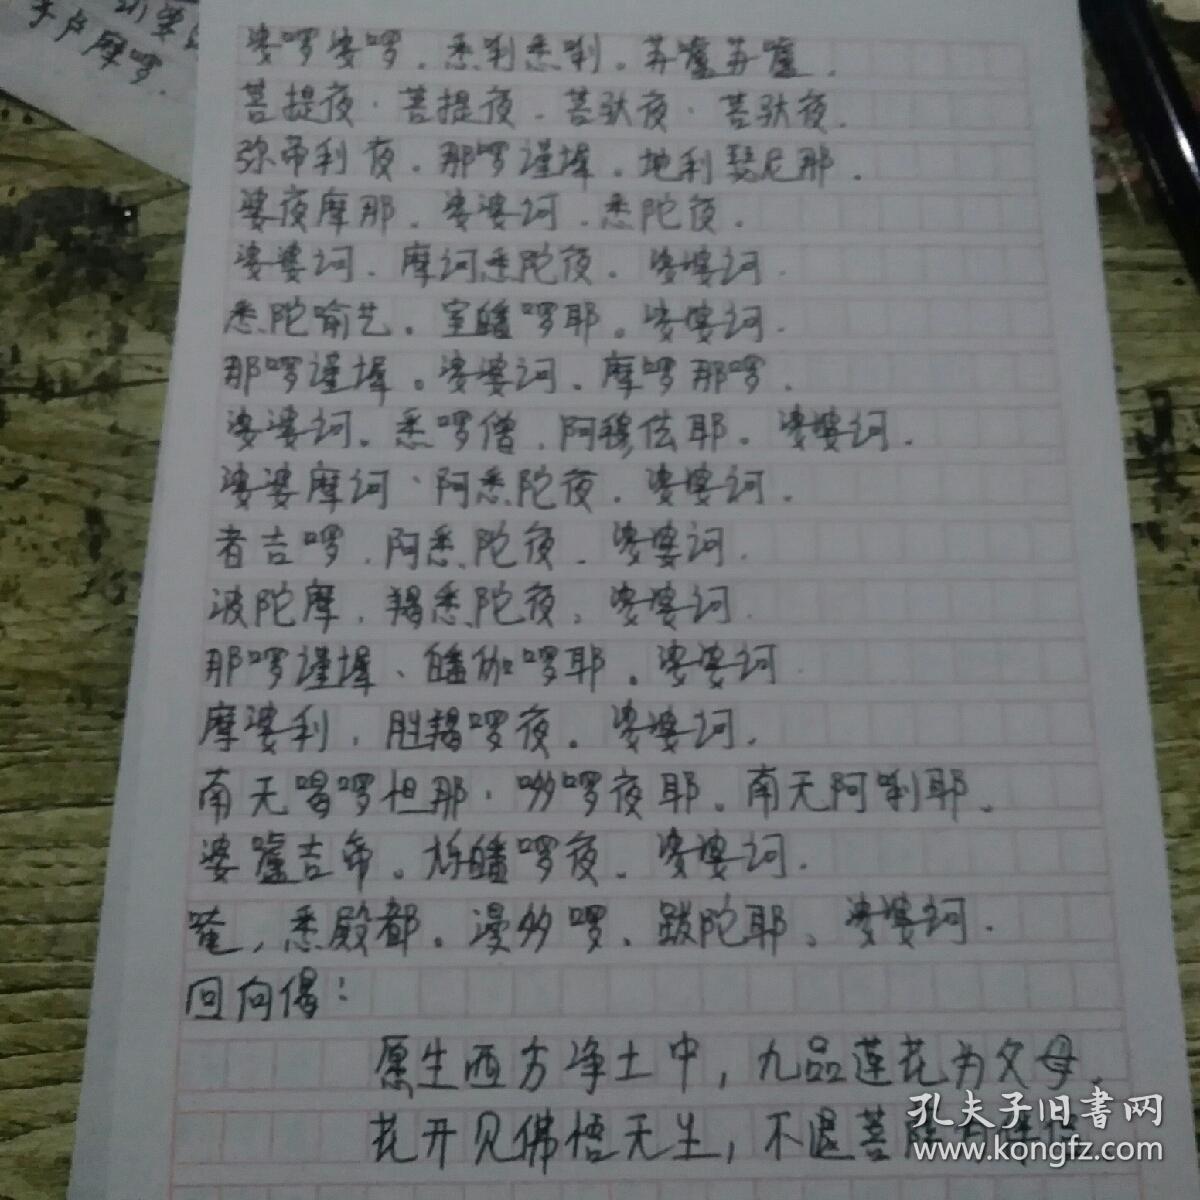 卢摩啰.
婆啰婆啰.悉唎悉唎。苏嚧苏嚧.
菩提夜·菩提夜.菩驮夜·菩驮夜.
弥帝利夜.那啰谨墀.地利瑟尼那.
婆夜摩那.婆婆诃.悉陀夜.
婆婆诃.摩诃悉陀夜.婆婆诃.
悉陀喻艺。室皤啰耶。婆婆诃.
那啰谨墀。婆婆诃.摩啰那啰.
婆婆诃。悉啰僧.阿穆佉耶.婆婆诃.
婆婆摩诃、阿悉陀夜.婆婆诃.
者吉啰.阿悉陀夜.婆婆诃.
波陀摩,羯悉陀夜,婆婆诃.
那啰谨墀、皤伽啰耶。婆婆诃.
摩婆利,胜羯啰夜。婆婆诃.
南无喝啰怛那·哆啰夜耶。南无阿唎耶。
婆嚧吉帝。烁皤啰夜.婆婆诃.
唵,悉殿都.漫多啰、跋陀耶、婆婆诃.
回向偈:
愿生西方净土中,九品莲花为父母.
花开见佛悟无生,不退菩
孔夫子旧书网
www.kongfz.com